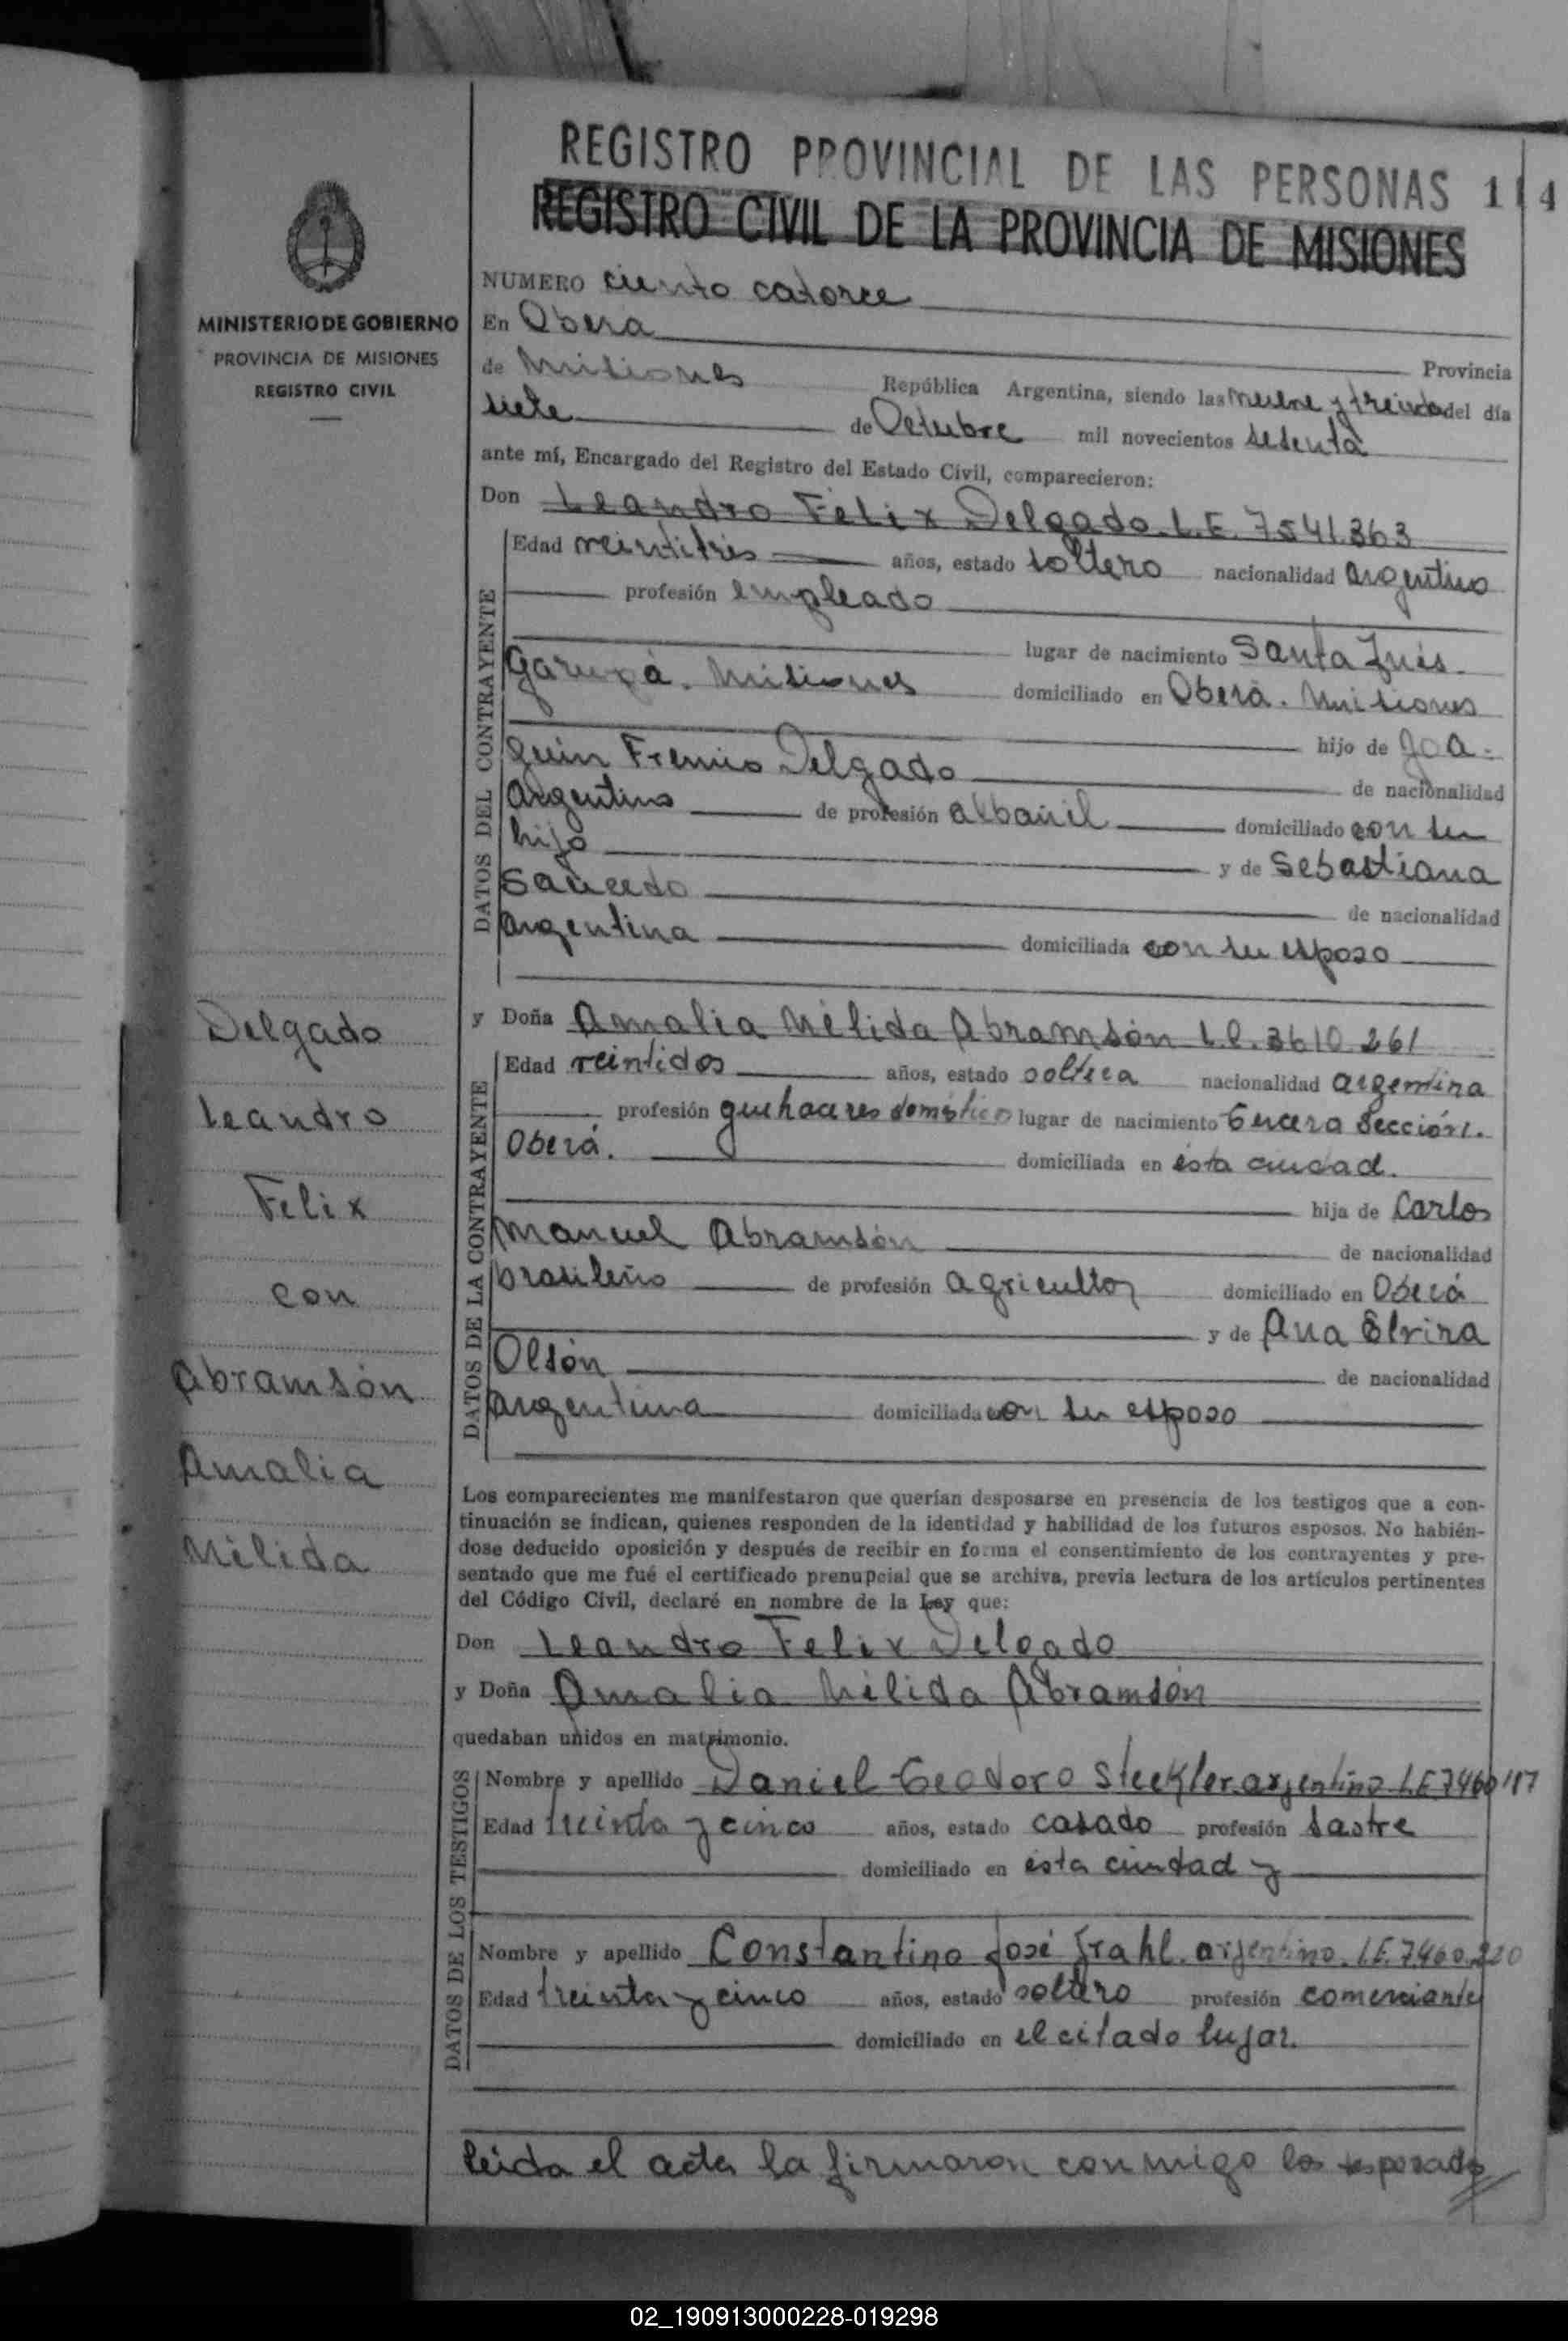 REGISTRO PROVINCIAL DE LAS PERSONAS 114
REGISTRO CIVIL DE LA PROVINCIA DE MISIONES
MINISTERIO DE GOBIERNO
PROVINCIA DE MISIONES
REGISTRO CIVIL
NUMERO ciento catorce
En Oberá Provincia
de Misiones República Argentina, siendo las nueve y treinta del día
siete de Octubre mil novecientos setenta
ante mí, Encargado del Registro del Estado Civil, comparecieron:
Don Leandro Felix Delgado. L.E. 7541.363
DATOS DEL CONTRAYENTE
Edad veintitrés años, estado soltero nacionalidad argentino
profesión empleado
lugar de nacimiento Santa Inés.
Garupá. Misiones domiciliado en Oberá. Misiones
hijo de Joa-
quin Delgado de nacionalidad
argentino de profesión albañil domiciliado con su
hijo y de Sebastiana
Saucedo de nacionalidad
argentina domiciliada con su esposo
y Doña Amalia Nélida Abramsón L.C. 3610.261
DATOS DE LA CONTRAYENTE
Edad veintidos años, estado soltera nacionalidad argentina
profesión quehaceres doméstico lugar de nacimiento Tercera Sección.
Oberá. domiciliada en ésta ciudad.
hija de Carlos
Manuel Abramsón de nacionalidad
brasileño de profesión agricultor domiciliado en Oberá
y de Ana Elvira
Olsón de nacionalidad
argentina domiciliada con su esposo
Los comparecientes me manifestaron que querían desposarse en presencia de los testigos que a con-
tinuación se indican, quienes responden de la identidad y habilidad de los futuros esposos. No habién-
dose deducido oposición y después de recibir en forma el consentimiento de los contrayentes y pre-
sentado que me fué el certificado prenupcial que se archiva, previa lectura de los artículos pertinentes
del Código Civil, declaré en nombre de la Ley que:
Don Leandro Felix Delgado
y Doña Amalia Nélida Abramsón
quedaban unidos en matrimonio.
DATOS DE LOS TESTIGOS
Nombre y apellido Daniel Teodoro Steckler. argentino L.E. 7460117
Edad treinta y cinco años, estado casado profesión sastre
domiciliado en ésta ciudad y
Nombre y apellido Constantino José Frahl. argentino. L.E. 7460.220
Edad treinta y cinco años, estado soltero profesión comerciante
domiciliado en el citado lugar.
leida el acta la firmaron conmigo los esposados
Delgado
Leandro
Felix
con
Abramsón
Amalia
Nélida
02_190913000228-019298